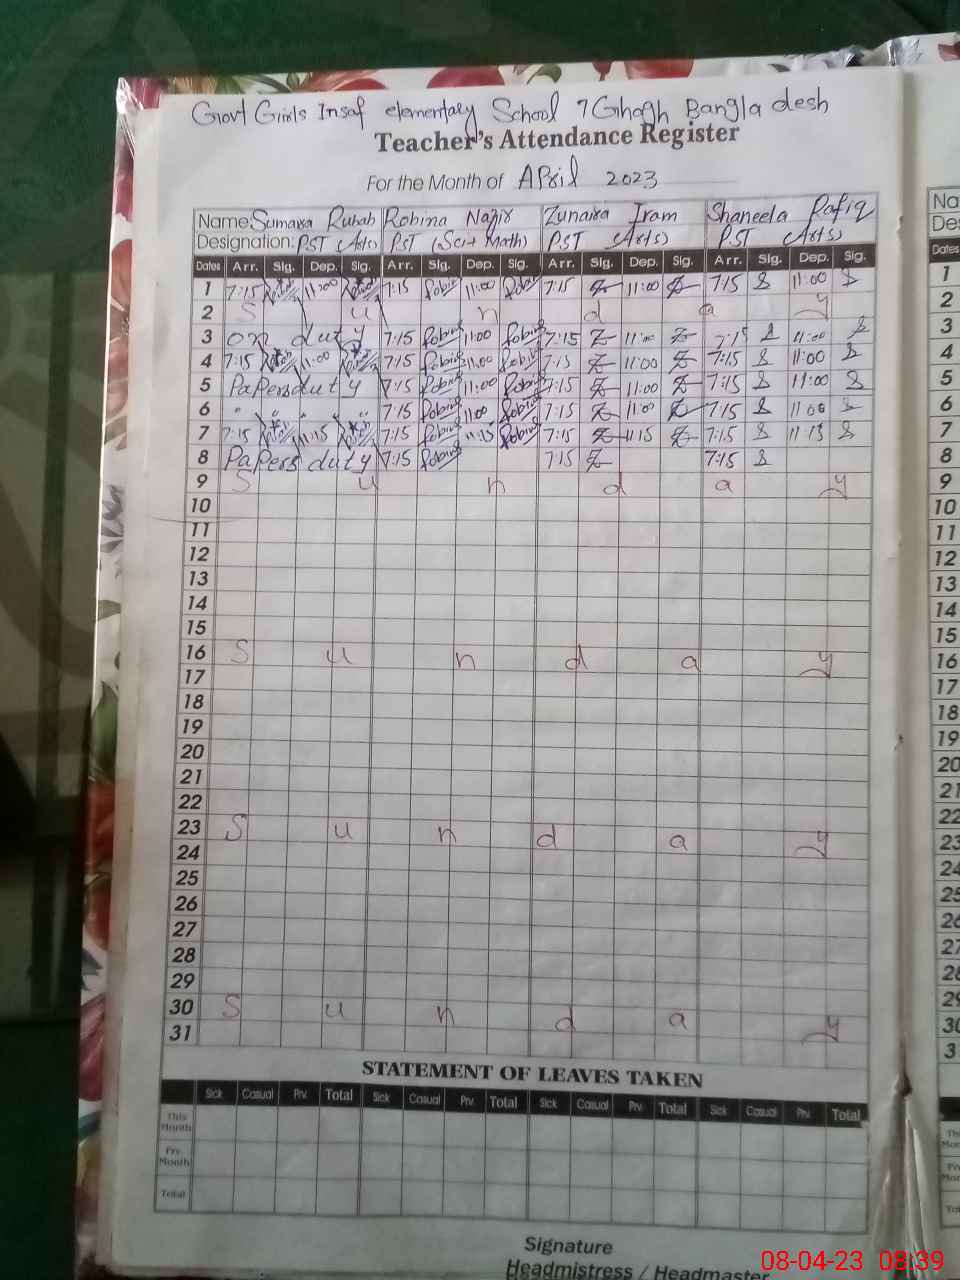 Govt Girls Insaf elementary School 7 Ghagh Bangla desh
Teacher's Attendance Register
For the Month of APril 2023
Name: Sumaira Rubab Robina Nazir Zunaira Iram Shaneela Rafiq
Designation: PST (Arts) PST (Sci+Math) PST (Arts) PST (Arts)
Dates Arr. Sig. Dep. Sig. Arr. Sig. Dep. Sig. Arr. Sig. Dep. Sig. Arr. Sig. Dep. Sig.
1 7:15 11:00 7:15 Robina 11:00 Robina 7:15 Z 11:00 Z 7:15 S 11:00 S
2 S u n d a y
3 on duty 7:15 Robina 11:00 Robina 7:15 Z 11:00 Z 7:15 S 11:00 S
4 7:15 11:00 7:15 Robina 11:00 Robina 7:15 Z 11:00 Z 7:15 S 11:00 S
5 Papers duty 7:15 Robina 11:00 Robina 7:15 Z 11:00 Z 7:15 S 11:00 S
6 " " " 7:15 Robina 11:00 Robina 7:15 Z 11:00 Z 7:15 S 11:00 S
7 7:15 11:15 7:15 Robina 11:15 Robina 7:15 Z 11:15 Z 7:15 S 11:15 S
8 Papers duty 7:15 Robina 7:15 Z 7:15 S
9 S u n d a y
10
11
12
13
14
15
16 S u n d a y
17
18
19
20
21
22
23 S u n d a y
24
25
26
27
28
29
30 S u n d a y
31
STATEMENT OF LEAVES TAKEN
Sick Casual Prv. Total Sick Casual Prv. Total Sick Casual Prv. Total Sick Casual Prv. Total
This Month
Prv. Month
Total
Signature
Headmistress / Headmaster
Na
Des
Dates
1
2
3
4
5
6
7
8
9
10
11
12
13
14
15
16
17
18
19
20
21
22
23
24
25
26
27
28
29
30
3
08-04-23 08:39